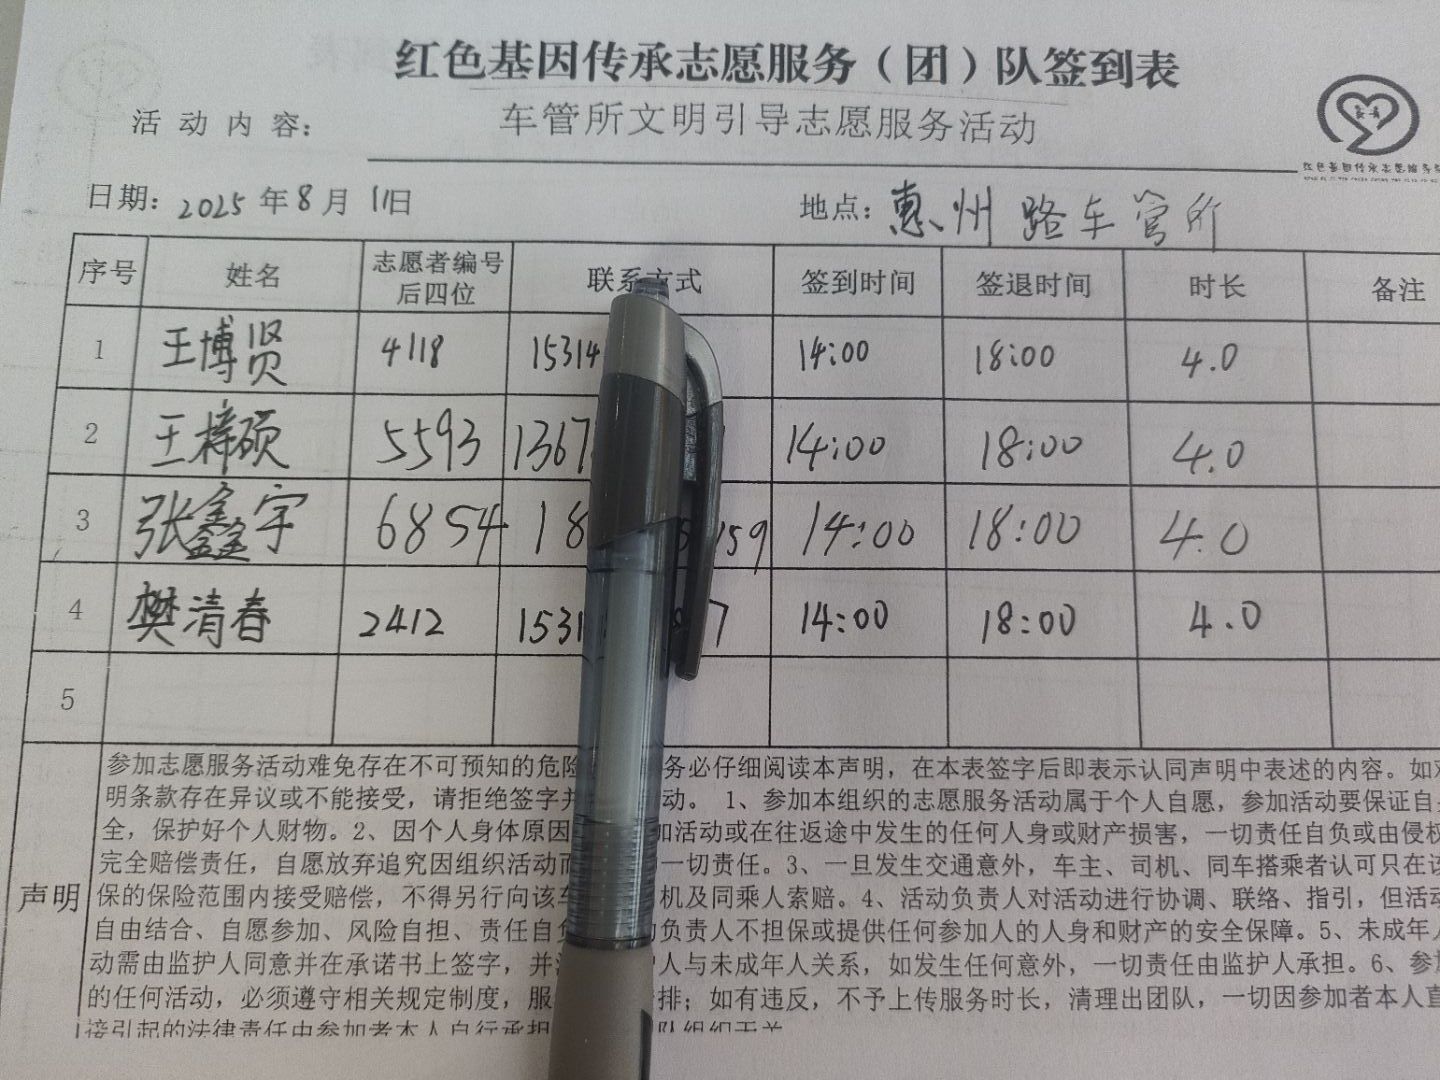 红色基因传承志愿服务（团）队签到表
活动内容： 车管所文明引导志愿服务活动
红色基因传承志愿服务
日期：2025年8月11日 地点：惠州路车管所
序号 姓名 志愿者编号后四位 联系方式 签到时间 签退时间 时长 备注
1 王博贤 4118 15314 14:00 18:00 4.0
2 王梓硕 5593 1367 14:00 18:00 4.0
3 张鑫宇 6854 18 159 14:00 18:00 4.0
4 樊清春 2412 1531 7 14:00 18:00 4.0
5
声明
参加志愿服务活动难免存在不可预知的危险 务必仔细阅读本声明，在本表签字后即表示认同声明中表述的内容。如对
明条款存在异议或不能接受，请拒绝签字并 动。 1、参加本组织的志愿服务活动属于个人自愿，参加活动要保证自
全，保护好个人财物。2、因个人身体原因 加活动或在往返途中发生的任何人身或财产损害，一切责任自负或由侵权
完全赔偿责任，自愿放弃追究因组织活动而 一切责任。3、一旦发生交通意外，车主、司机、同车搭乘者认可只在该
保的保险范围内接受赔偿，不得另行向该车 机及同乘人索赔。4、活动负责人对活动进行协调、联络、指引，但活动
自由结合、自愿参加、风险自担、责任自负 动负责人不担保或提供任何参加人的人身和财产的安全保障。5、未成年人
动需由监护人同意并在承诺书上签字，并 护人与未成年人关系，如发生任何意外，一切责任由监护人承担。6、参加
的任何活动，必须遵守相关规定制度，服 排；如有违反，不予上传服务时长，清理出团队，一切因参加者本人直
接引起的法律责任由参加者本人自行承担 队组织无关